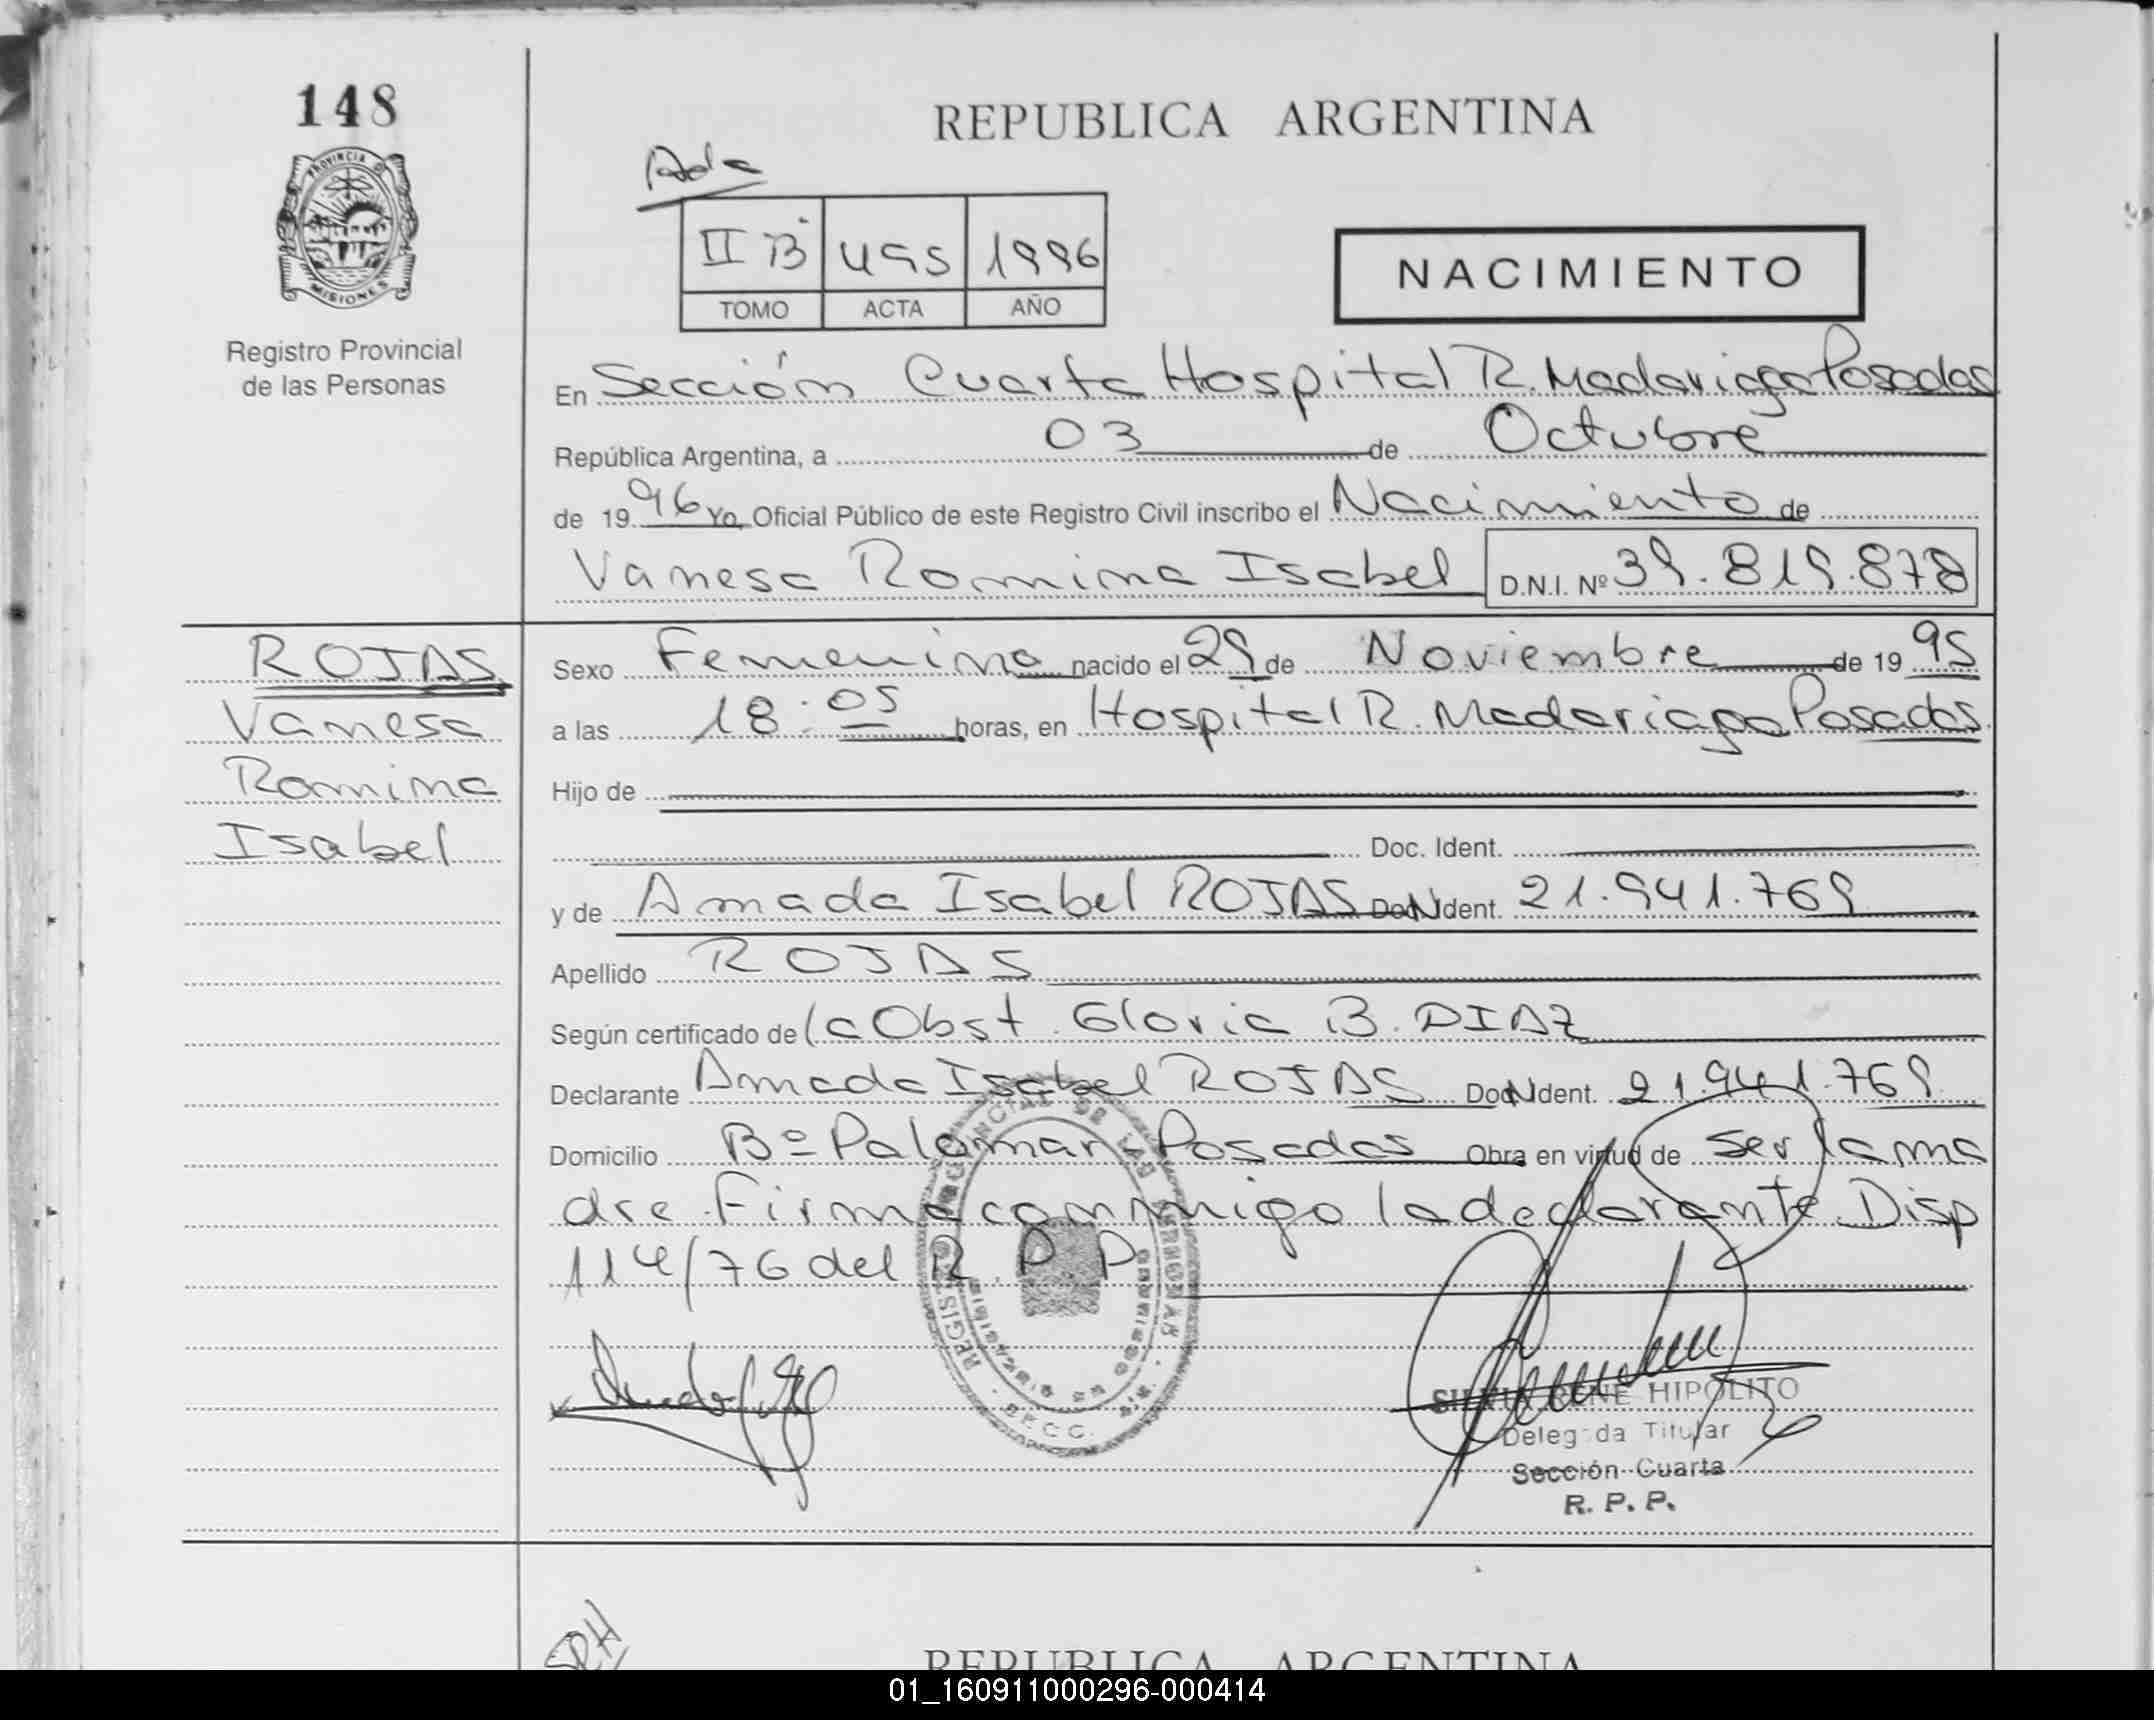 148
REPUBLICA ARGENTINA
PROVINCIA D
MISIONES
Registro Provincial
de las Personas
II B 495 1996
TOMO ACTA AÑO
NACIMIENTO
En Sección Cuarta Hospital R. Madariaga Posadas
República Argentina, a 03 de Octubre
de 1996 Yo, Oficial Público de este Registro Civil inscribo el Nacimiento de
Vanesa Romina Isabel D.N.I. Nº 39.819.878
ROJAS
Vanesa
Romina
Isabel
Sexo Femenino nacido el 29 de Noviembre de 1995
a las 18:05 horas, en Hospital R. Madariaga Posadas
Hijo de
Doc. Ident.
y de Amada Isabel ROJAS Doc. Ident. 21.941.769
Apellido ROJAS
Según certificado de la Obst. Gloria B. DIAZ
Declarante Amada Isabel ROJAS Doc. Ident. 21.941.769
Domicilio Bº Palomar Posadas Obra en virtud de ser la ma
dre. Firma conmigo la declarante Disp
114/76 del R.P.P
REGISTRO PROVINCIAL DE LAS PERSONAS
SILVIA RENE HIPOLITO
Delegada Titular
Sección Cuarta
R. P. P.
SRH
REPUBLICA ARGENTINA
01_160911000296-000414